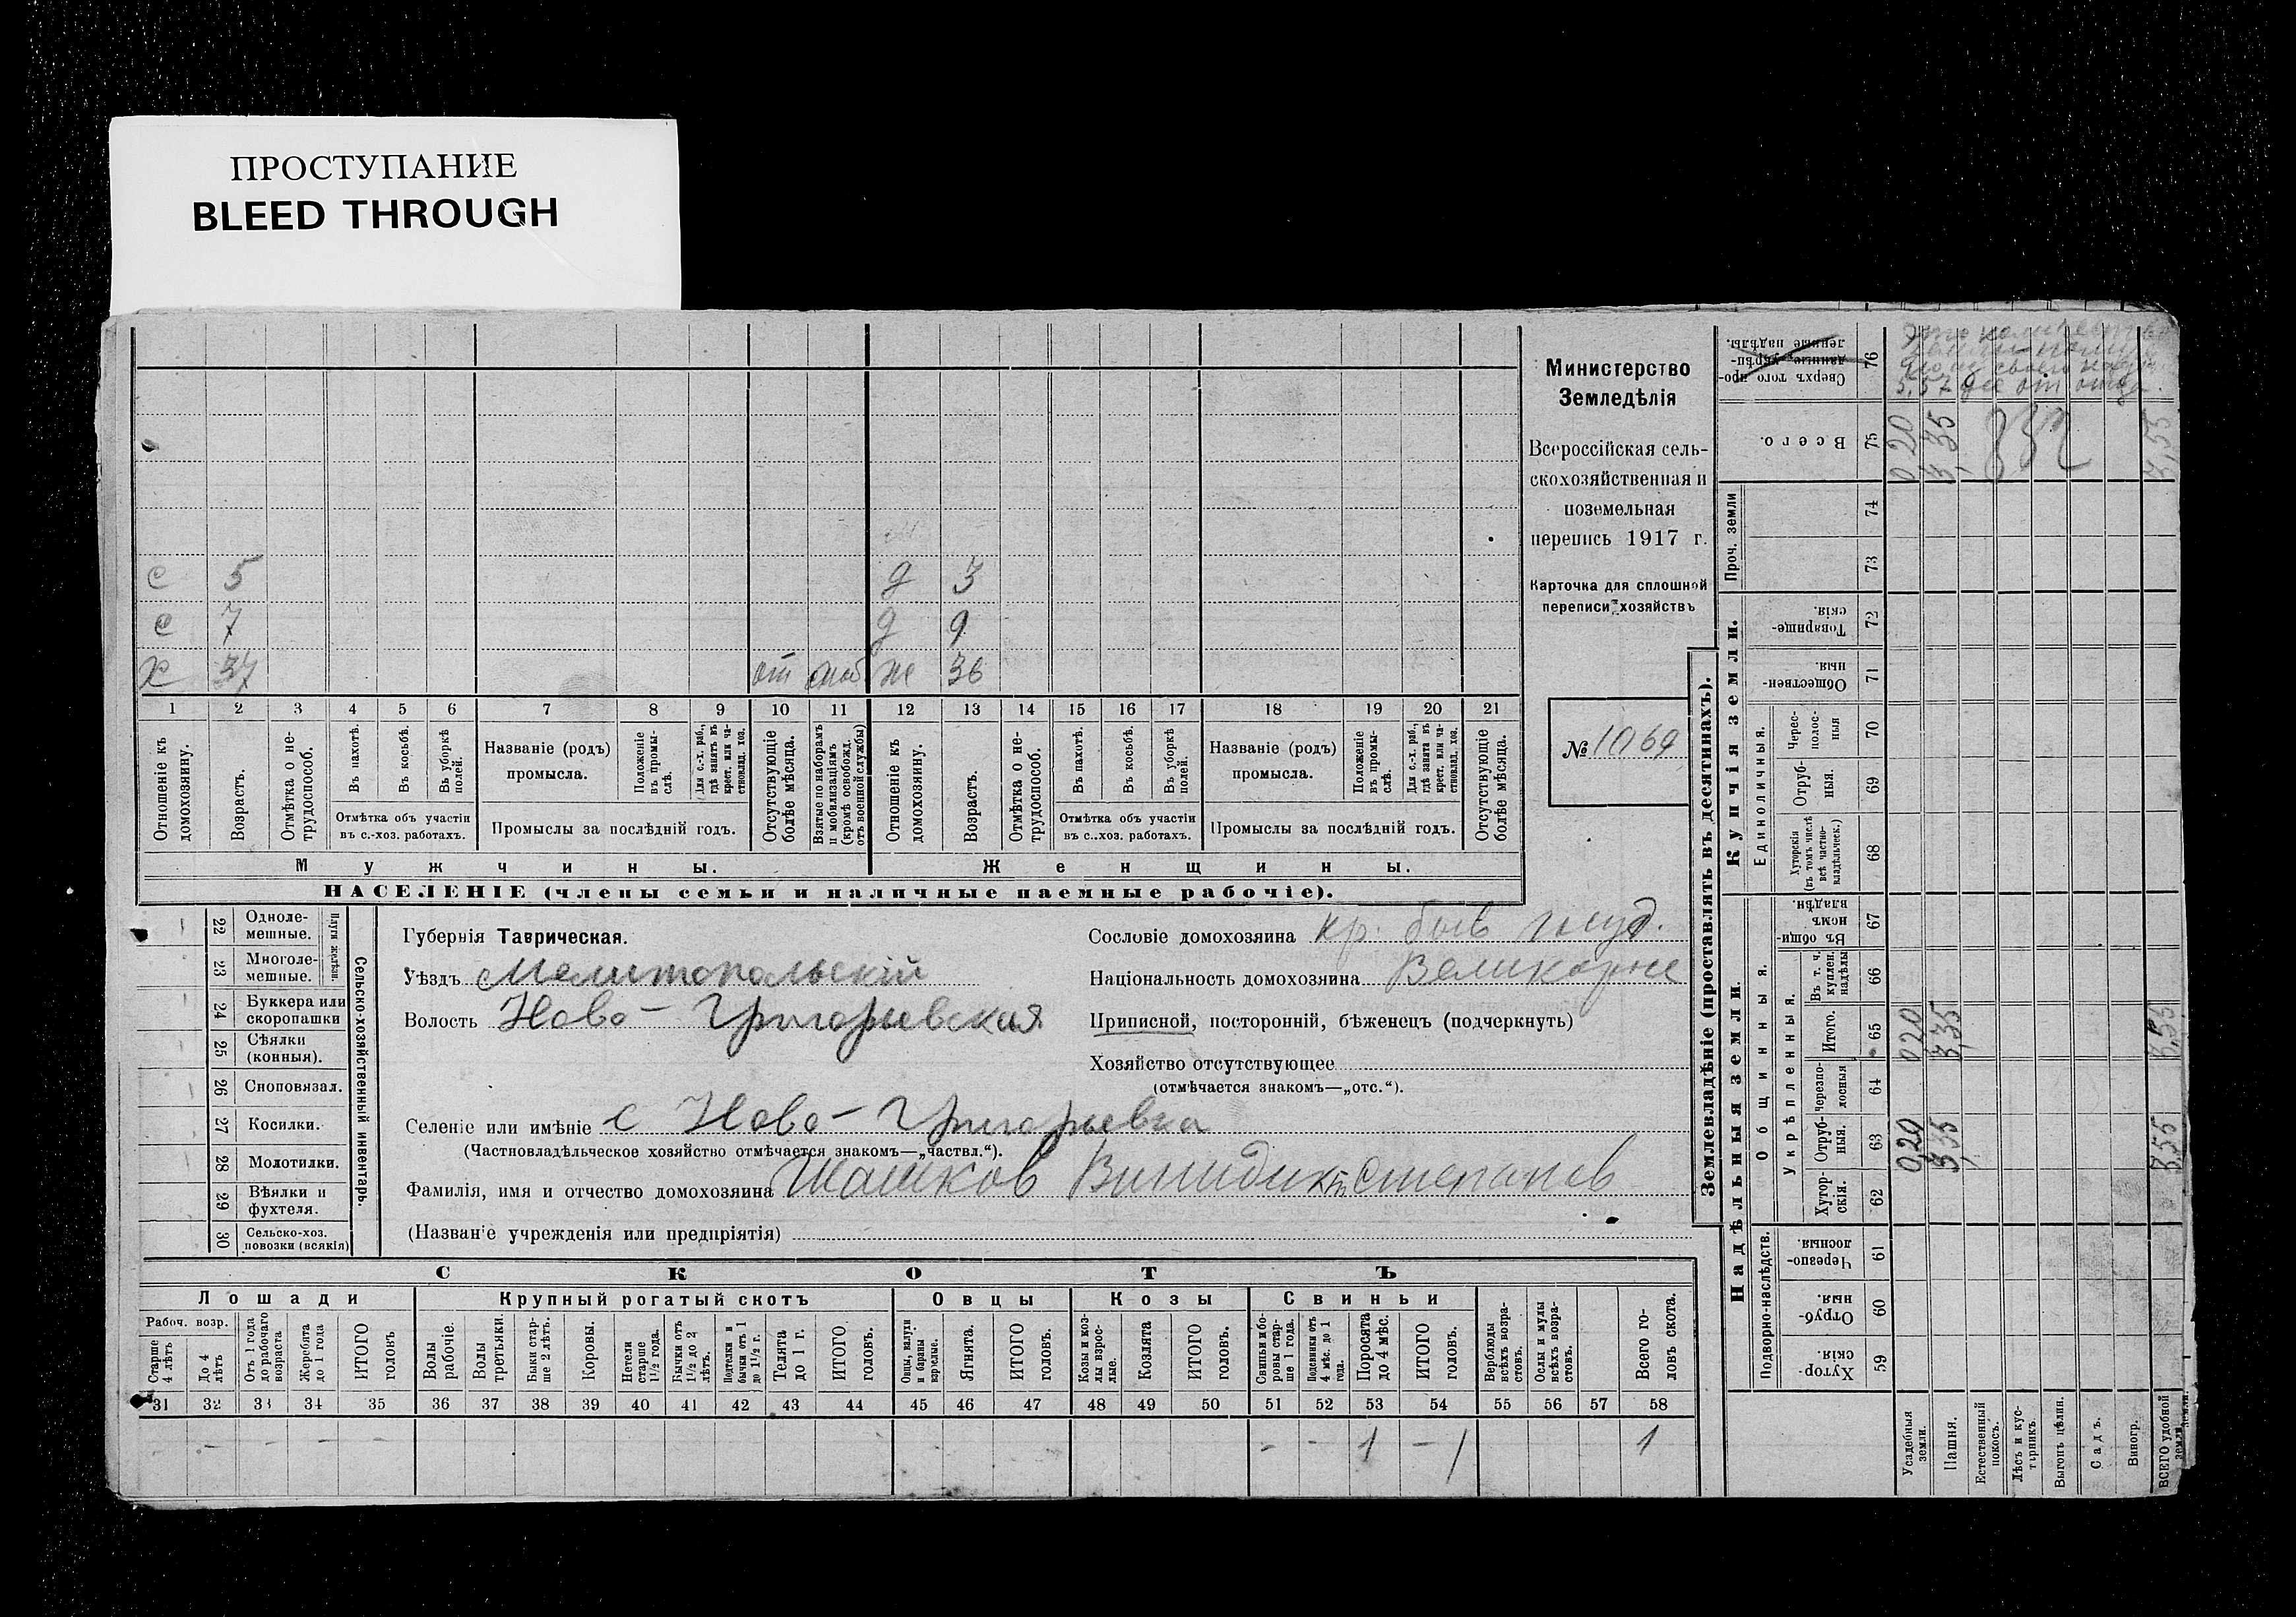 ПРОСТУПАНИЕ
BLEED THROUGH
с 5 д 3
с 7 д 9
х 37 от моб ж 36
1 2 3 4 5 6 7 8 9 10 11 12 13 14 15 16 17 18 19 20 21
Отношеніе къ домохозяину.
Возрастъ.
Отмѣтка о нетрудоспособ.
Въ пахотѣ.
Въ косьбѣ.
Въ уборкѣ полей.
Отмѣтка объ участіи
въ с.-хоз. работахъ.
Названіе (родъ)
промысла.
Положеніе въ промыслѣ.
Для с.-х. раб., гдѣ занятъ въ крест. или частновлад. хоз.
Промыслы за послѣдній годъ.
Отсутствующіе болѣе мѣсяца.
Взятые по наборамъ и мобилизаціямъ (кромѣ освобожд. отъ военной службы)
Отношеніе къ домохозяину.
Возрастъ.
Отмѣтка о нетрудоспособ.
Въ пахотѣ.
Въ косьбѣ.
Въ уборкѣ полей.
Отмѣтка объ участіи
въ с.-хоз. работахъ.
Названіе (родъ)
промысла.
Положеніе въ промыслѣ.
Для с.-х. раб., гдѣ занята въ крест. или частновлад. хоз.
Промыслы за послѣдній годъ.
Отсутствующіе болѣе мѣсяца.
Мужчины. Женщины.
НАСЕЛЕНІЕ (члены семьи и наличные наемные рабочіе).
Министерство
Земледѣлія
Всероссійская сель-
скохозяйственная и
поземельная
перепись 1917 г.
Карточка для сплошной
переписи хозяйствъ
№ 1069
22 Одноле-
мешные.
23 Многоле-
мешные.
Плуги желѣзн.
24 Буккера или
скоропашки
25 Сѣялки
(конныя).
26 Сноповязал.
27 Косилки.
28 Молотилки.
29 Вѣялки и
фухтеля.
30 Сельско-хоз.
повозки (всякія)
Сельско-хозяйственный инвентарь.
Губернія Таврическая.
Уѣздъ Мелитопольскій
Волость Ново-Григорьевская
Сословіе домохозяина кр. быв госуд.
Національность домохозяина Великорос
Приписной, посторонній, бѣженецъ (подчеркнуть)
Хозяйство отсутствующее
(отмѣчается знакомъ—„отс.“).
Селеніе или имѣніе с Ново-Григорьевка
(Частновладѣльческое хозяйство отмѣчается знакомъ—„частвл.“).
Фамилія, имя и отчество домохозяина Шашков Винидикт Степанов
(Названіе учрежденія или предпріятія)
СКОТЪ
Лошади Крупный рогатый скотъ Овцы Козы Свиньи
Рабоч. возр.
Старше 4 лѣтъ
До 4 лѣтъ
Отъ 1 года до рабочаго возраста
Жеребята до 1 года
ИТОГО головъ
Волы рабочіе.
Волы третьяки.
Быки старше 2 лѣтъ.
Коровы.
Нетели старше 1½ года.
Бычки отъ 1½ до 2 лѣтъ.
бычки отъ 1 до 1½ г.
Телята до 1 г.
ИТОГО головъ.
Овцы, валухи и бараны взрослые.
Ягнята.
ИТОГО головъ.
Козы и козлы взрослые.
Козлята
ИТОГО головъ.
Свиньи и боровы старше 1 года.
Подсвинки отъ 4 мѣс. до 1 года.
Поросята до 4 мѣс.
ИТОГО головъ.
Верблюды всѣхъ возрастовъ.
Ослы и мулы всѣхъ возрастовъ.
Всего головъ скота.
31 32 33 34 35 36 37 38 39 40 41 42 43 44 45 46 47 48 49 50 51 52 53 54 55 56 57 58
- - - - - - 1 - 1 1
Землевладѣніе (проставлять въ десятинахъ).
Надѣльныя земли.
Купчія земли.
Проч. земли
Подворно-наслѣдств.
Общинныя.
Укрѣпленныя.
Единоличныя.
Хуторскія. 59
Отрубныя. 60
Черезполосныя. 61
Хуторскія. 62
Отрубныя. 63
Черезполосныя 64
Итого. 65
Въ т. ч. куплен. надѣлы 66
Въ общинномъ владѣн. 67
Хуторскія (въ томъ числѣ всѣ частновладѣльческ.) 68
Отрубныя. 69
Черезполосныя 70
Общественныя. 71
Товарищескія. 72
73
74
Всего. 75
Сверхъ того проданные укрѣпленные надѣлы. 76
0,20 0,20 0,20
3,35 3,35 3,35
3,55 3,55 3,55
Усадебныя земли.
Пашня.
Естественный покосъ.
Лѣсъ и кустарникъ.
Выгонъ цѣлин.
Садъ.
Виногр.
ВСЕГО удобной земли.